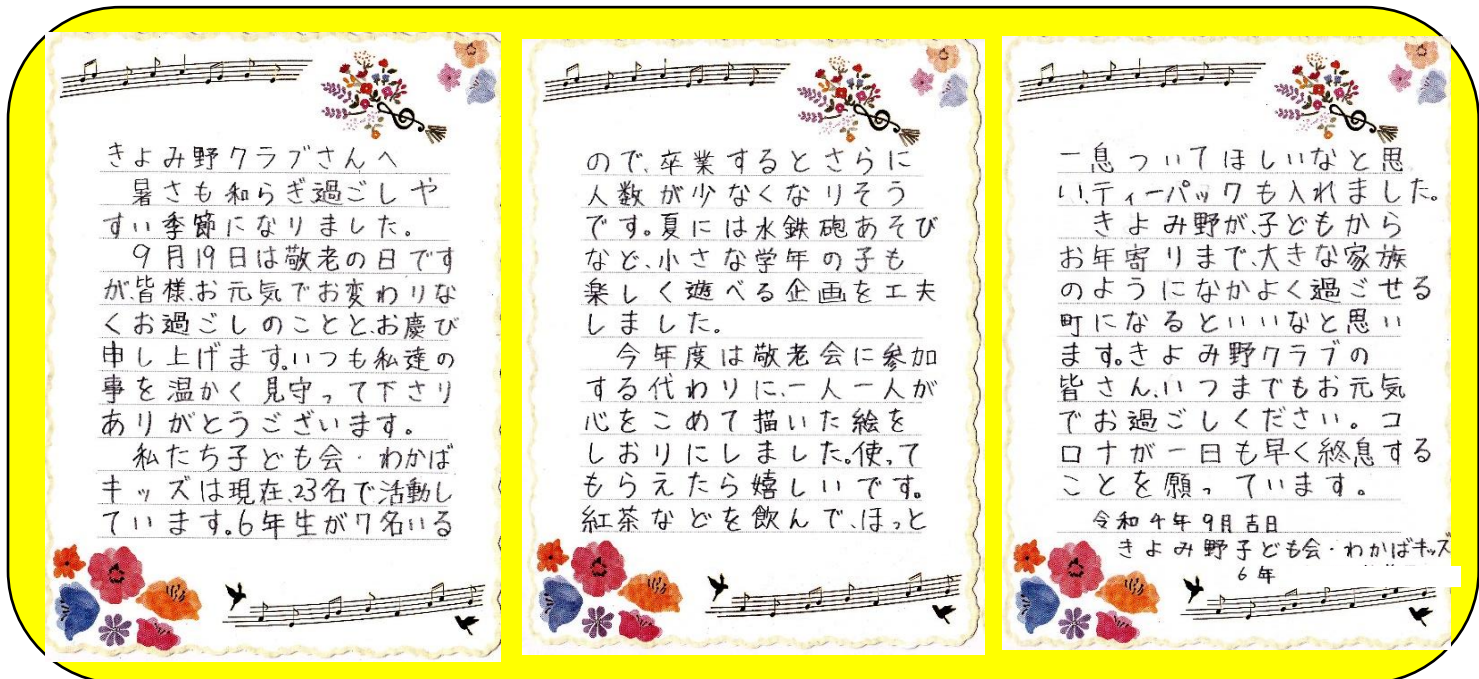 きよみ野クラブさんへ
暑さも和らぎ過ごしや
すい季節になりました。
9月19日は敬老の日です
が、皆様、お元気でお変わりな
くお過ごしのことと、お慶び
申し上げます。いつも私達の
事を温かく見守って下さり
ありがとうございます。
私たち子ども会・わかば
キッズは現在、23名で活動し
ています。6年生が7名いる
ので、卒業するとさらに
人数が少なくなりそう
です。夏には水鉄砲あそび
など、小さな学年の子も
楽しく遊べる企画を工夫
しました。
今年度は敬老会に参加
する代わりに、一人一人が
心をこめて描いた絵を
しおりにしました。使って
もらえたら嬉しいです。
紅茶などを飲んで、ほっと
一息ついてほしいなと思
い、ティーパックも入れました。
きよみ野が、子どもから
お年寄りまで、大きな家族
のようになかよく過ごせる
町になるといいなと思い
ます。きよみ野クラブの
皆さん、いつまでもお元気
でお過ごしください。コ
ロナが一日も早く終息する
ことを願っています。
令和4年9月吉日
きよみ野子ども会・わかばキッズ
6年